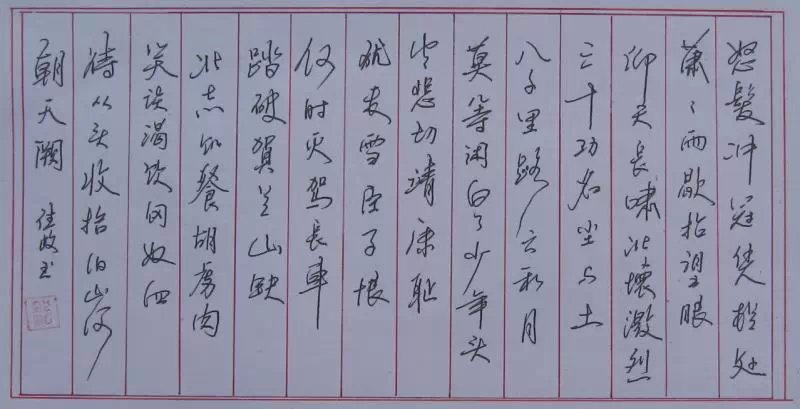 怒髮冲冠凭栏处
萧〻雨歇抬望眼
仰天长啸壮怀激烈
三十功名尘与土
八千里路云和月
莫等闲白了少年头
空悲切靖康耻
犹未雪臣子恨
何时灭驾长車
踏破賀兰山缺
壮志饥餐胡虏肉
笑谈渴饮匈奴血
待从头收拾旧山河
朝天阙 书